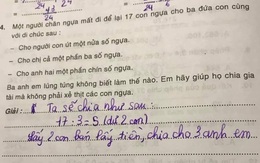 24 24
4. Một người chăn ngựa mất đi để lại 17 con ngựa cho ba đứa con cùng
với di chúc sau :
- Cho người con út một nửa số ngựa.
- Cho chị cả một phần ba số ngựa.
- Cho anh hai một phần chín số ngựa.
Ba anh em lúng túng không biết làm thế nào. Em hãy giúp họ chia gia
tài mà không phải xẻ thịt các con ngựa.
Giải : Ta sẽ chia như sau :
17 : 3 = 5 (dư 2 con)
Lấy 2 con bán lấy tiền, chia cho 3 anh em...